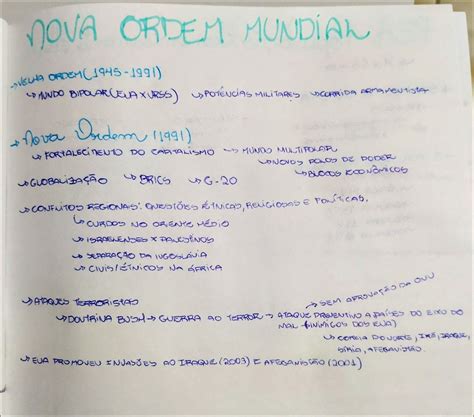 NOVA ORDEM MUNDIAL
→ VELHA ORDEM (1945-1991)
↳ MUNDO BIPOLAR (EUA X URSS) ↳ POTÊNCIAS MILITARES ↳ CORRIDA ARMAMENTISTA
→ Nova Ordem (1991)
↳ FORTALECIMENTO DO CAPITALISMO → MUNDO MULTIPOLAR
↳ NOVOS POLOS DE PODER
↳ BLOCOS ECONÔMICOS
↳ GLOBALIZAÇÃO ↳ BRICS ↳ G-20
→ CONFLITOS REGIONAIS: QUESTÕES ÉTNICAS, RELIGIOSAS E POLÍTICAS.
↳ CURDOS NO ORIENTE MÉDIO
↳ ISRAELENSES X PALESTINOS
↳ SEPARAÇÃO DA IUGOSLÁVIA
↳ CIVIS/ÉTNICOS NA ÁFRICA
→ SEM APROVAÇÃO DA ONU
→ ATAQUES TERRORISTAS
↳ DOUTRINA BUSH → GUERRA AO TERROR → ATAQUE PREVENTIVO A PAÍSES DO EIXO DO
MAL (INIMIGOS DOS EUA)
↳ COREIA DO NORTE, IRÃ, IRAQUE,
SÍRIA, AFEGANISTÃO.
→ EUA PROMOVEU INVASÕES AO IRAQUE (2003) E AFEGANISTÃO (2001)